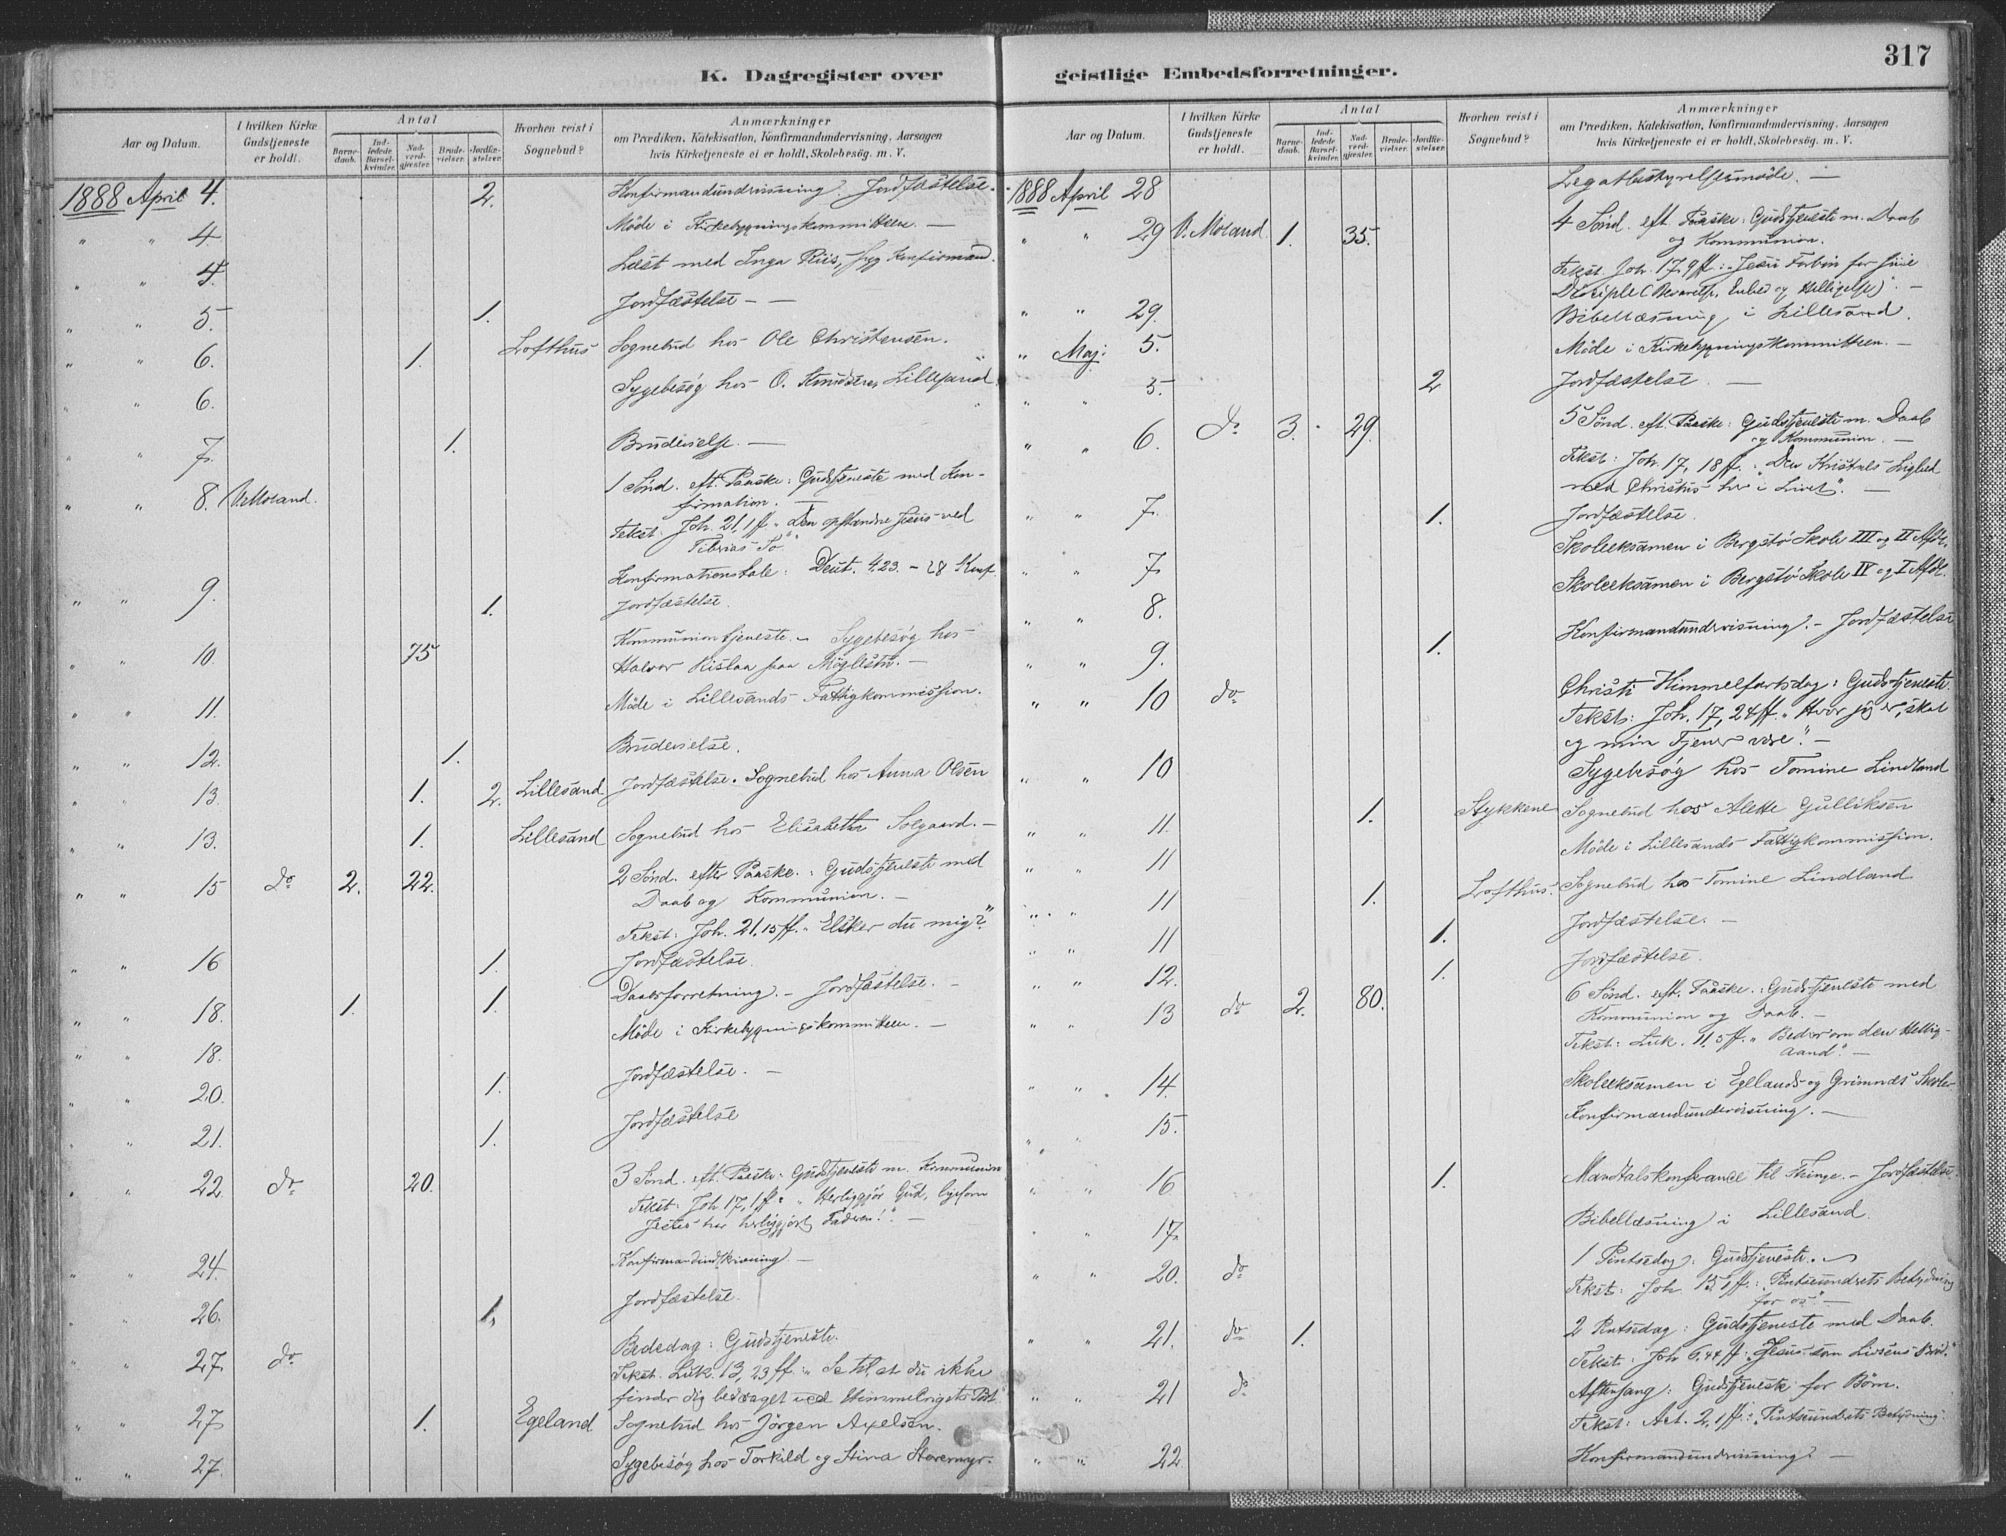 317
K. Dagregister over
Aar og Datum.
I hvilken Kirke Gudstjeneste er holdt.
Antal
Barne- daab.
Ind- ledede Barsel- kvinder.
Nad- verd- gjester.
Brude- vielser.
Jordfæ- stelser.
Hvorhen reist i Sognebud?
Anmærkninger
om Prædiken, Katekisation, Konfirmandundervisning, Aarsagen
hvis Kirketjeneste ei er holdt, Skolebesøg. m. V.
1888 April 4. 2. Konfirmandundervisning. Jordfæstelse.
" " 4 Møde i Kirkebygningskommitteen. —
" " 4. Læst med Inga Riis, syg Konfirmand.
" " 5. 1. Jordfæstelse — —
" " 6. 1. Lofthus Sognebud hos Ole Christensen.
" " 6. Sygebesøg hos O. Lillesand.
" " 7. 1. Brudevielse. —
" " 8. V. Moland. 1 Sønd. eft. Paaske: Gudstjeneste med Kon-
firmation.
Tekst: Joh. 21, 1ff. "Den opstandne Jesus ved
Tiberias Sø"
Konfirmationstale: Deut. 4.23. — 28 Konf.
" " 9. 1. Jordfæstelse.
" " 10. 75 Kommuniontjeneste. — Sygebesøg hos
Halvor paa Møglestu. —
" " 11. Møde i Lillesands Fattigkommission.
" " 12. 1. Brudevielse.
" " 13. 1. 2. Lillesand Jordfæstelse. Sognebud hos Anna Olsen
" " 13. 1. Lillesand Sognebud hos Elisabeth Solgaard. —
" " 15 do 2. 22. 2 Sønd. efter Paaske: Gudstjeneste med
Daab og Kommunion. —
Tekst: Joh. 21.15ff. "Elsker du mig?"
" " 16 1. Jordfæstelse.
" " 18. 1. 1. Daabsforretning. — Jordfæstelse. —
" " 18. Møde i Kirkebygningskommitteen. —
" " 20. 1. Jordfæstelse. —
" " 21. 1. Jordfæstelse
" " 22. do 20. 3 Sønd. eft. Paaske: Gudstjeneste m. Kommunion
Tekst: Joh 17, 1ff: "Herliggjør Gud, ligesom
Jesus har herliggjort Faderen!" —
" " 24. Konfirmandindskrivning —
" " 26. 1. Jordfæstelse.
" " 27. do Bededag: Gudstjeneste.
Tekst. Luk. 13, 23ff: "Se til, at du ikke
finder dig bedraget ved Himmeriges Port"
" " 27. 1. Egeland Sognebud hos Jørgen Axelsen.
" " 27. Sygebesøg hos Torkild og Stina Storemyr.
geistlige Embedsforretninger.
Aar og Datum.
I hvilken Kirke Gudstjeneste er holdt.
Antal
Barne- daab.
Ind- ledede Barsel- kvinder.
Nad- verd- gjester.
Brude- vielser.
Jordfæ- stelser.
Hvorhen reist i Sognebud?
Anmærkninger
om Prædiken, Katekisation, Konfirmandundervisning, Aarsagen
hvis Kirketjeneste ei er holdt, Skolebesøg. m. V.
1888 April 28 Legatbestyrelsesmøde. —
" " 29 V. Moland. 1. 35. 4 Sønd. eft. Paaske: Gudstjeneste m. Daab
og Kommunion.
Tekst Joh. 17, 9ff: "Jesu Forbøn for sine
Disciple (Bevarelse, Enhed og Helligelse)". —
" " 29. Bibellæsning i Lillesand.
" Maj: 5. Møde i Kirkebygningskommitteen. —
" " 5. 2 Jordfæstelse. —
" " 6. do 3. 29. 5 Sønd. eft. Paaske: Gudstjeneste m. Daab
og Kommunion. —
Tekst: Joh. 17, 18ff: "Den Kristnes Lighed
med Christus her i Livet". —
" " 7. 1. Jordfæstelse.
" " 7. Skoleeksamen i Bergstø Skole III og II Afdl.
" " 8. Skoleeksamen i Bergstø Skole IV og I Afdl.
" " 9. 1. Konfirmandundervisning. — Jordfæstelse
" " 10 do Christi Himmelfartsdag: Gudstjeneste.
Tekst: Joh. 17, 24ff. "Hvor jeg er, skal
og min Tjener være". —
" " 10 Sygebesøg hos Tomine Lindland
" " 11. 1. Stykkene Sognebud hos Alette Gulliksen
" " 11 Møde i Lillesands Fattigkommission.
" " 11 1. Lofthus. Sognebud hos Tomine Lindland
" " 11 1. Jordfæstelse. —
" " 12. 1. Jordfæstelse.
" " 13 do 2. 80. 6 Sønd. eft. Paaske: Gudstjeneste med
Kommunion og Daab. —
Tekst: Luk. 11.5ff. "Beder om den Hellig-
aand". —
" " 14. Skoleeksamen i Egelands og Grimnæs Skoler
" " 15. Konfirmandundervisning. —
" " 16 1. Mandtalskonferance til Thinge. — Jordfæstelse
" " 17. Bibellæsning i Lillesand.
" " 20. do 1 Pintsedag: Gudstjeneste. —
Tekst: Joh. 15, 1ff.: "Pintseundrets Betydning
for os". —
" " 21. do 1. 2 Pintsedag: Gudstjeneste med Daab.
Tekst: Joh 6,44ff: "Jesus som Livsens Brød."
" " 21 do Aftensang: Gudstjeneste for Børn.
Tekst: Act. 2, 1ff: "Pintseundrets Betydning".
" " 22 Konfirmandundervisning. —